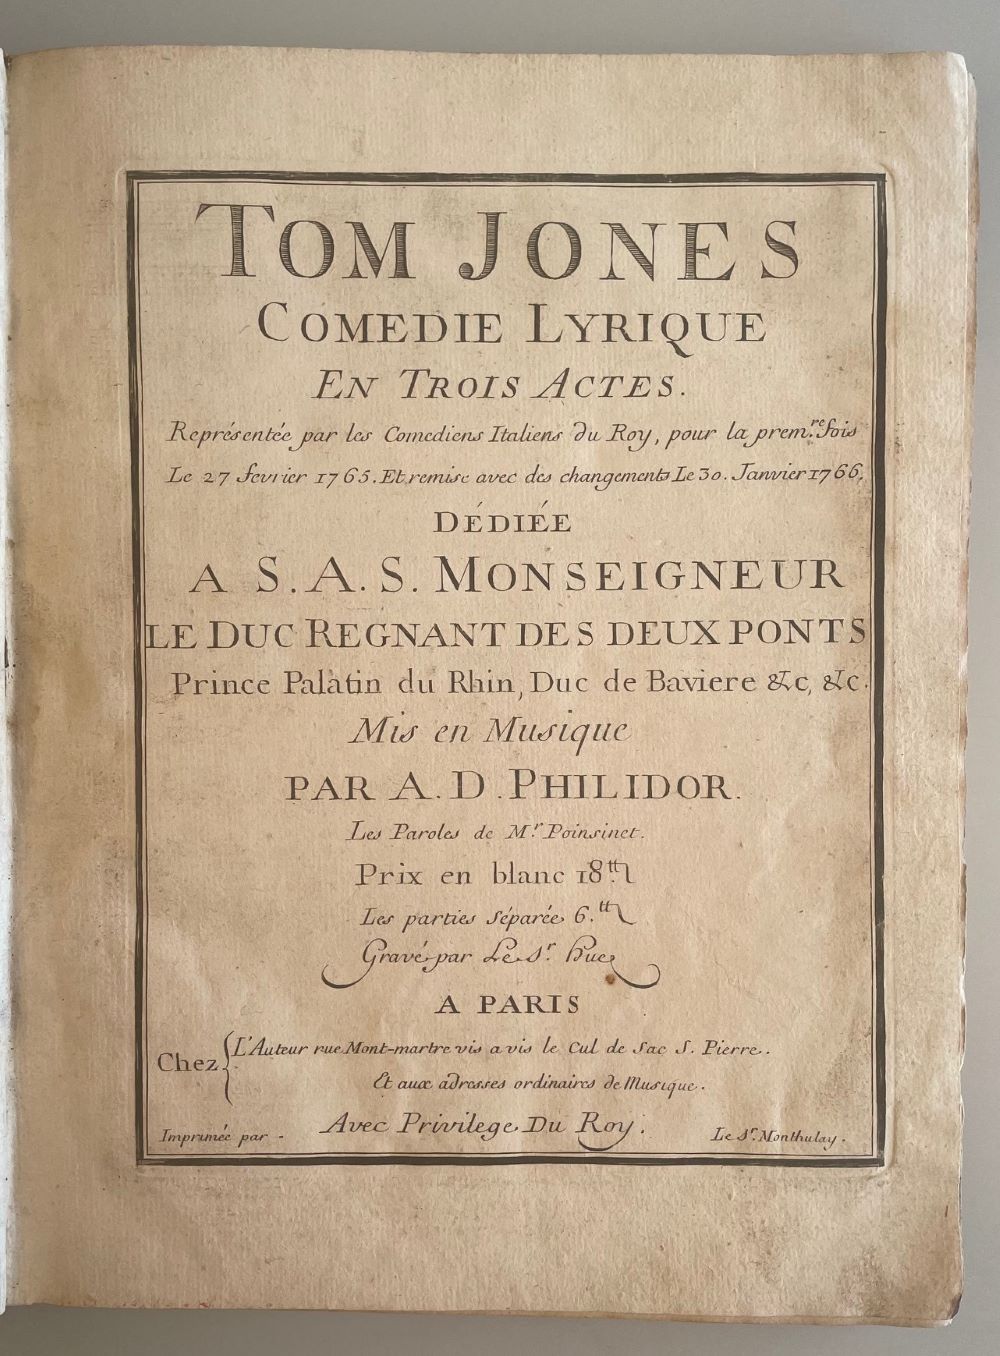 TOM JONES
COMEDIE LYRIQUE
EN TROIS ACTES.
Représentée par les Comediens Italiens du Roy, pour la prem.re fois
Le 27 fevrier 1765. Et remise avec des changements Le 30. Janvier 1766.
DÉDIÉE
A S. A. S. MONSEIGNEUR
LE DUC REGNANT DES DEUX PONTS
Prince Palatin du Rhin, Duc de Baviere &c, &c.
Mis en Musique
PAR A. D. PHILIDOR.
Les Paroles de M.r Poinsinet.
Prix en blanc 18.tt
Les parties séparée 6.tt
Gravé par Le Sr. Hue
A PARIS
Chez { L'Auteur rue Mont-martre vis a vis le Cul de Sac S. Pierre.
Et aux adresses ordinaires de Musique.
Avec Privilege Du Roy.
Imprimée par - Le Sr. Monthulay.